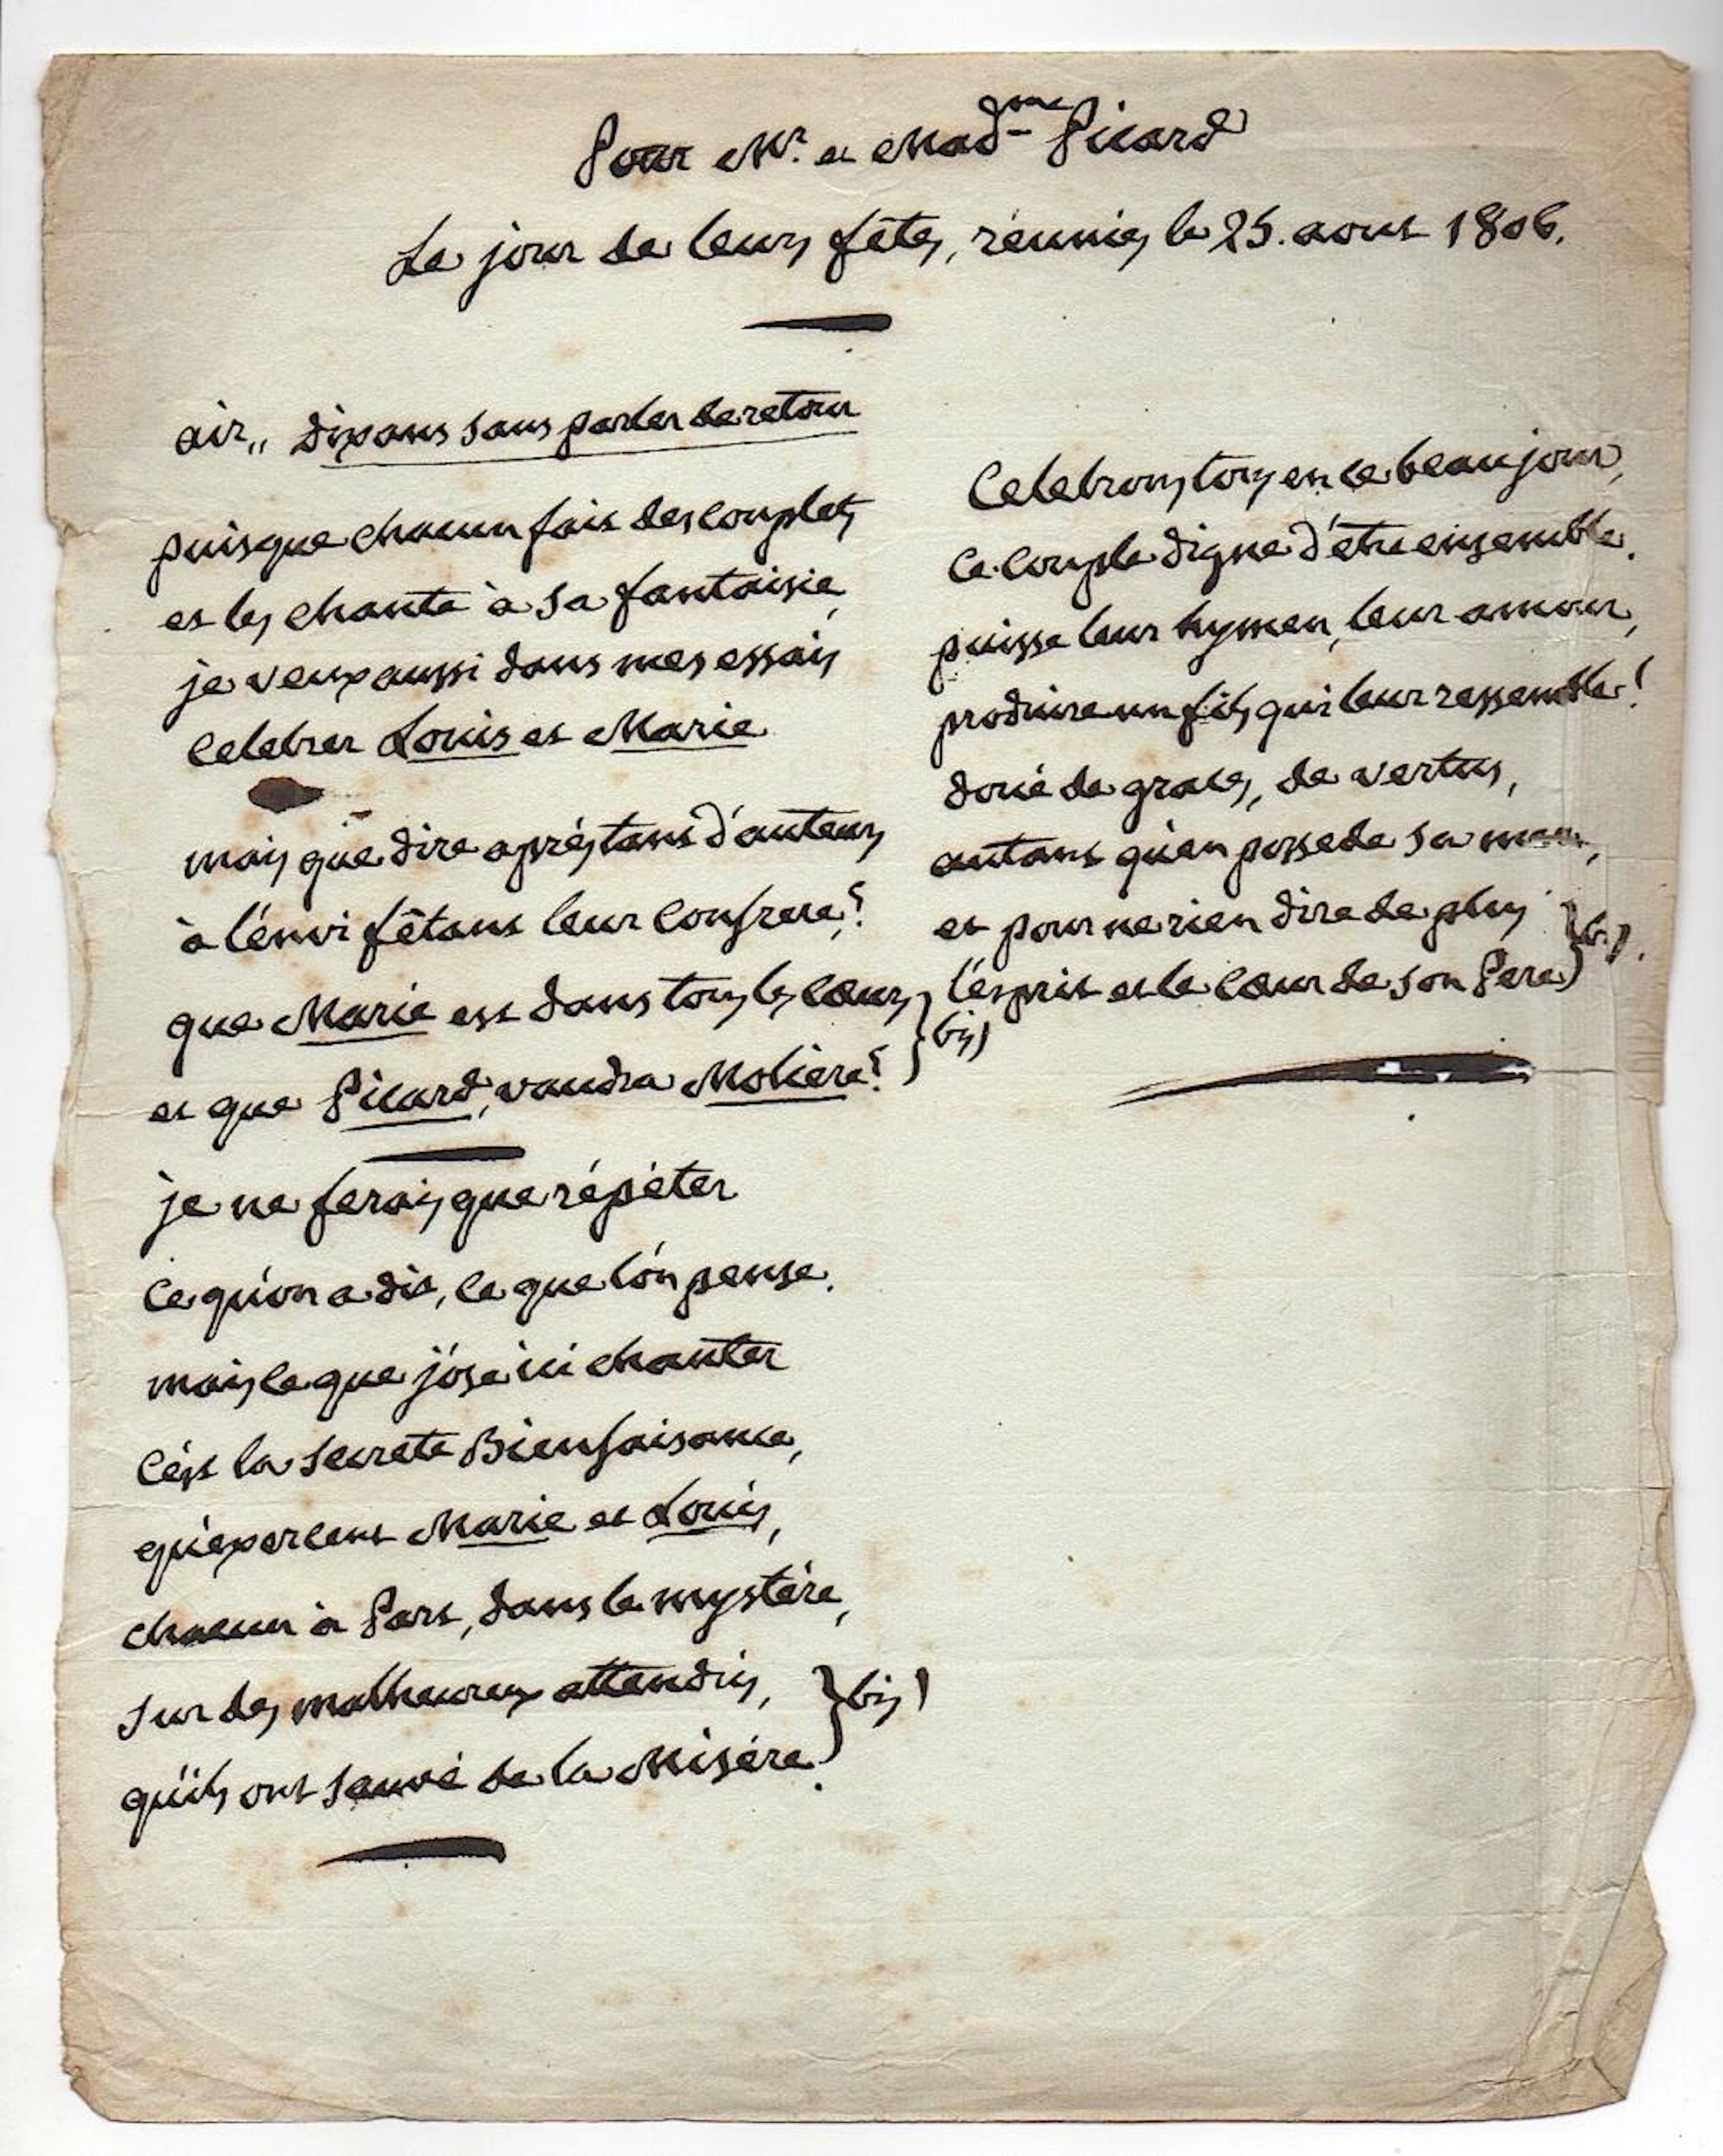 Pour Mr. et Madme Picard
Le jour de leurs fêtes, réunies le 25. aout 1806.
air,, disons sans parler de retour
puisque chacun fait des couplets
et les chante à sa fantaisie,
je veux aussi dans mes essais
Celebrer Louis et Marie.
mais que dire après tant d'auteurs
à l'énvi fêtant leur Confrere?
que Marie est dans tous les cœurs
et que Picard, vaudra Moliere? } bis)
je ne ferois que répéter
Ce qu'on a dit, ce que l'ón pense.
mais ce que j'óse ici chanter
C'ést la secrete Bienfaisance,
qu'exercent Marie et Louis,
chacun à Part, dans le mystére,
sur des malheureux attendris,
qu'ils ont sauvé de la Misére. } bis)
Celebrons tous en ce beau jour,
Ce Couple digne d'être ensemble.
puisse leur hymen, leur amour,
produire un fils qui leur ressemble!
doué de graces, de vertus,
autant qu'en possede sa mere,
et pour ne rien dire de plus
l'ésprit et le Cœur de son Pere } bis).